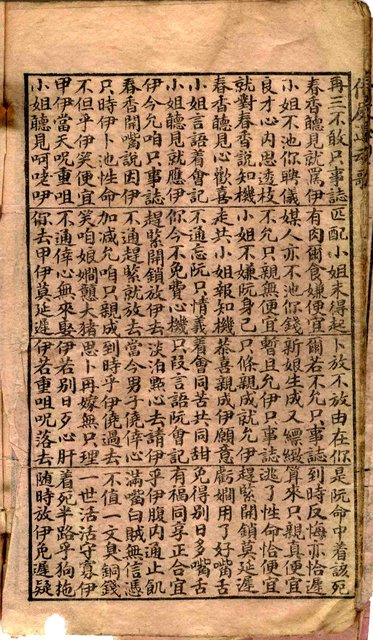 再三不敢只事誌 匹配小姐未得起 卜放不放由在你 是阮命中看該死
春香聽見就罵伊 有肉爾食嫌便宜 爾若不允只事誌 到時反悔亦恰遲
小姐不池你聘儀 媒人亦不池你錢 新娘生成又縹緻 算來只親真便宜
良才心內思透枝 不允只親無便宜 暫且允伊只事誌 逃了性命恰便宜
就對春香說知機 小姐不嫌阮身己 只條親成就允伊 趕緊開鎖莫延遲
春香聽見心歡喜 走共小姐報知機 恭喜親成伊願意 虧嫺用了好嘴舌
小姐言語着會記 不通忘阮只情義 着會同苦共同甜 免得別日多嘴舌
小姐聽見就應伊 你今不免費心機 只段言語阮會記 有福同享正合宜
伊今允咱只事誌 趕緊開鎖放伊去 淡泊點心去請伊 乎伊腹內通止飢
春香開嘴說因伊 不通趕緊就放去 當今男子僥倖心 滿嘴白賊無信憑
只時伊卜池性命 加減允咱只親成 到時乎伊僥過去 不值一文臭銅錢
不但乎伊笑便宜 笑咱娘嫺戇大豬 思卜再嫁無只理 一世活活守寡伊
甲伊當天呪重咀 不通倖心無來娶 伊若別日歹心肝 着死半路乎狗拖
小姐聽見呵咾咿 你去甲伊莫延遲 伊若重咀呪落去 隨時放伊免遲疑